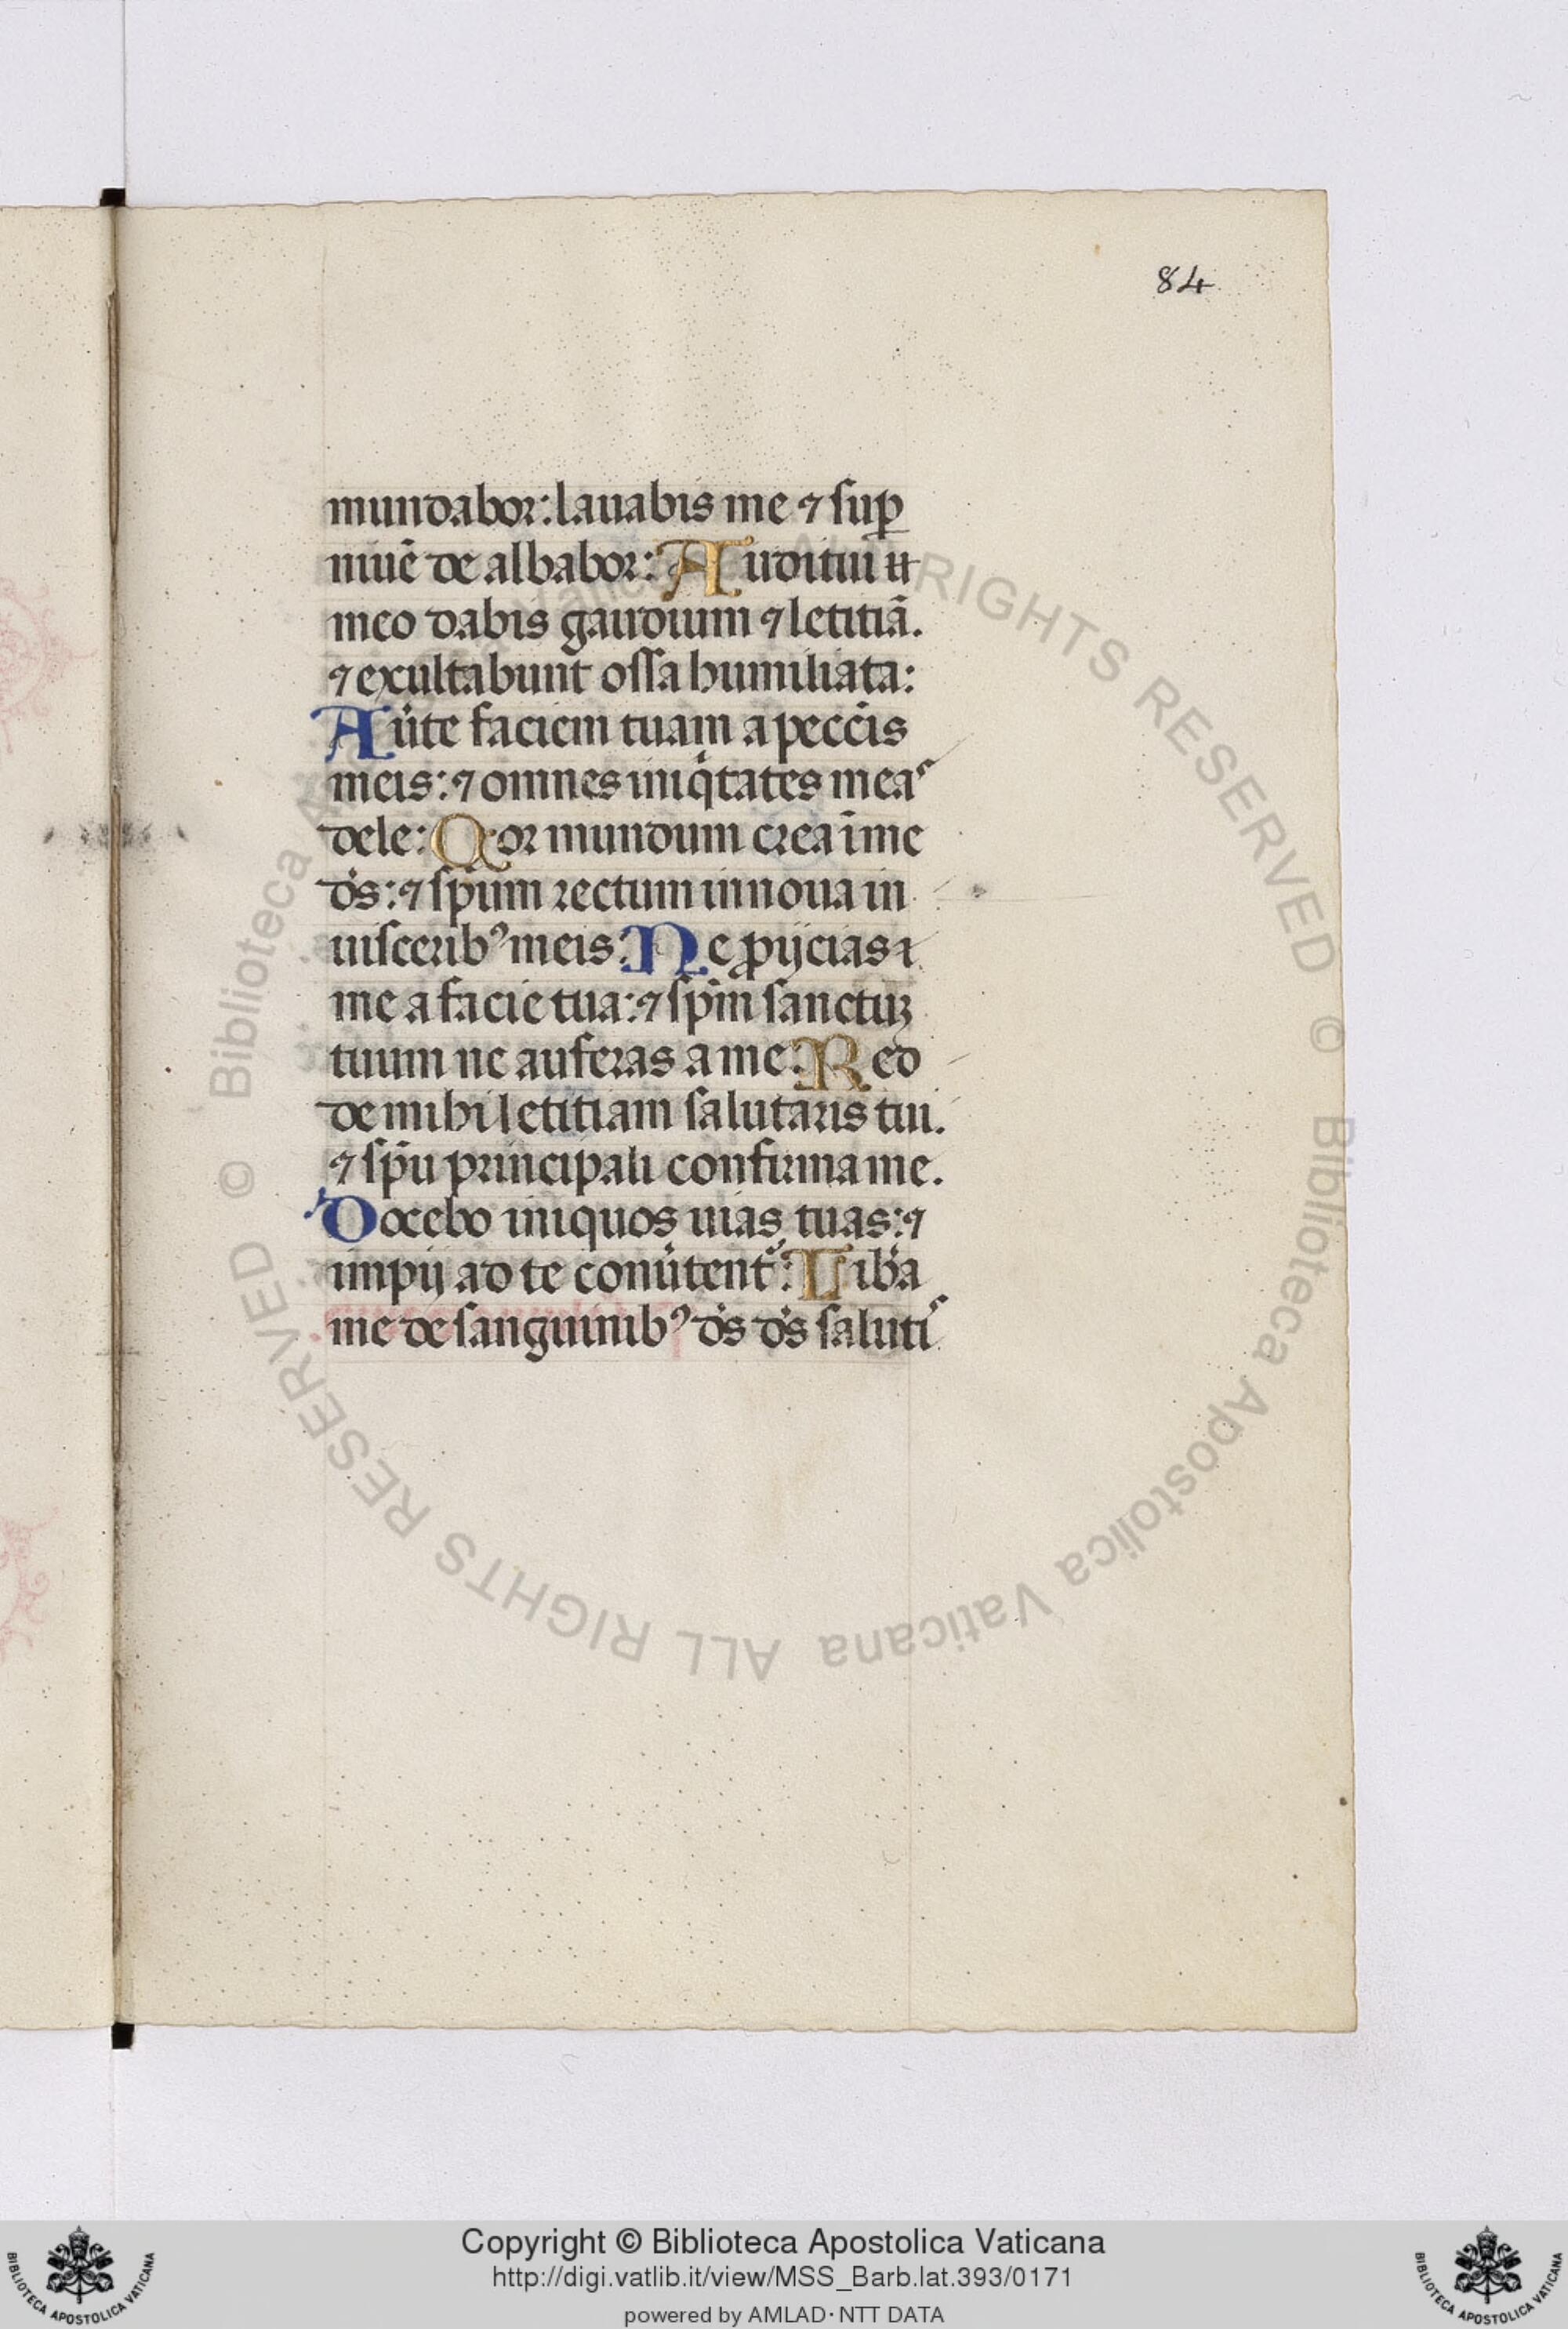 84
mundabor: lauabis me ⁊ suꝑ
niuē de albabor: Auditui
meo dabis gaudium ⁊ letitiã.
⁊ exultabunt ossa humiliata:
Au̕te faciem tuam a pecc̄is
meis: ⁊ omnes iniqͥtates meas
dele: Cor mundum crea ī me
d̕s: ⁊ sp̄um rectum innoua in
uiscerib⁹ meis: Ne ꝓijcias
me a facie tua: ⁊ sp̄m sanctuꝫ
tuum ne auferas a me: Red
de mihi letitiam salutaris tui.
⁊ sp̄u principali confirma me.
Docebo iniquos uias tuas: ⁊
impij ad te conu̕tent᷑: Lib̕a
me de sanguinib⁹ d̕s d̕s salutis
© Biblioteca Apostolica Vaticana ALL RIGHTS RESERVED © Biblioteca Apostolica Vaticana ALL RIGHTS RESERVED
BIBLIOTECA APOSTOLICA VATICANA
Copyright © Biblioteca Apostolica Vaticana
http://digi.vatlib.it/view/MSS_Barb.lat.393/0171
powered by AMLAD·NTT DATA
BIBLIOTECA APOSTOLICA VATICANA